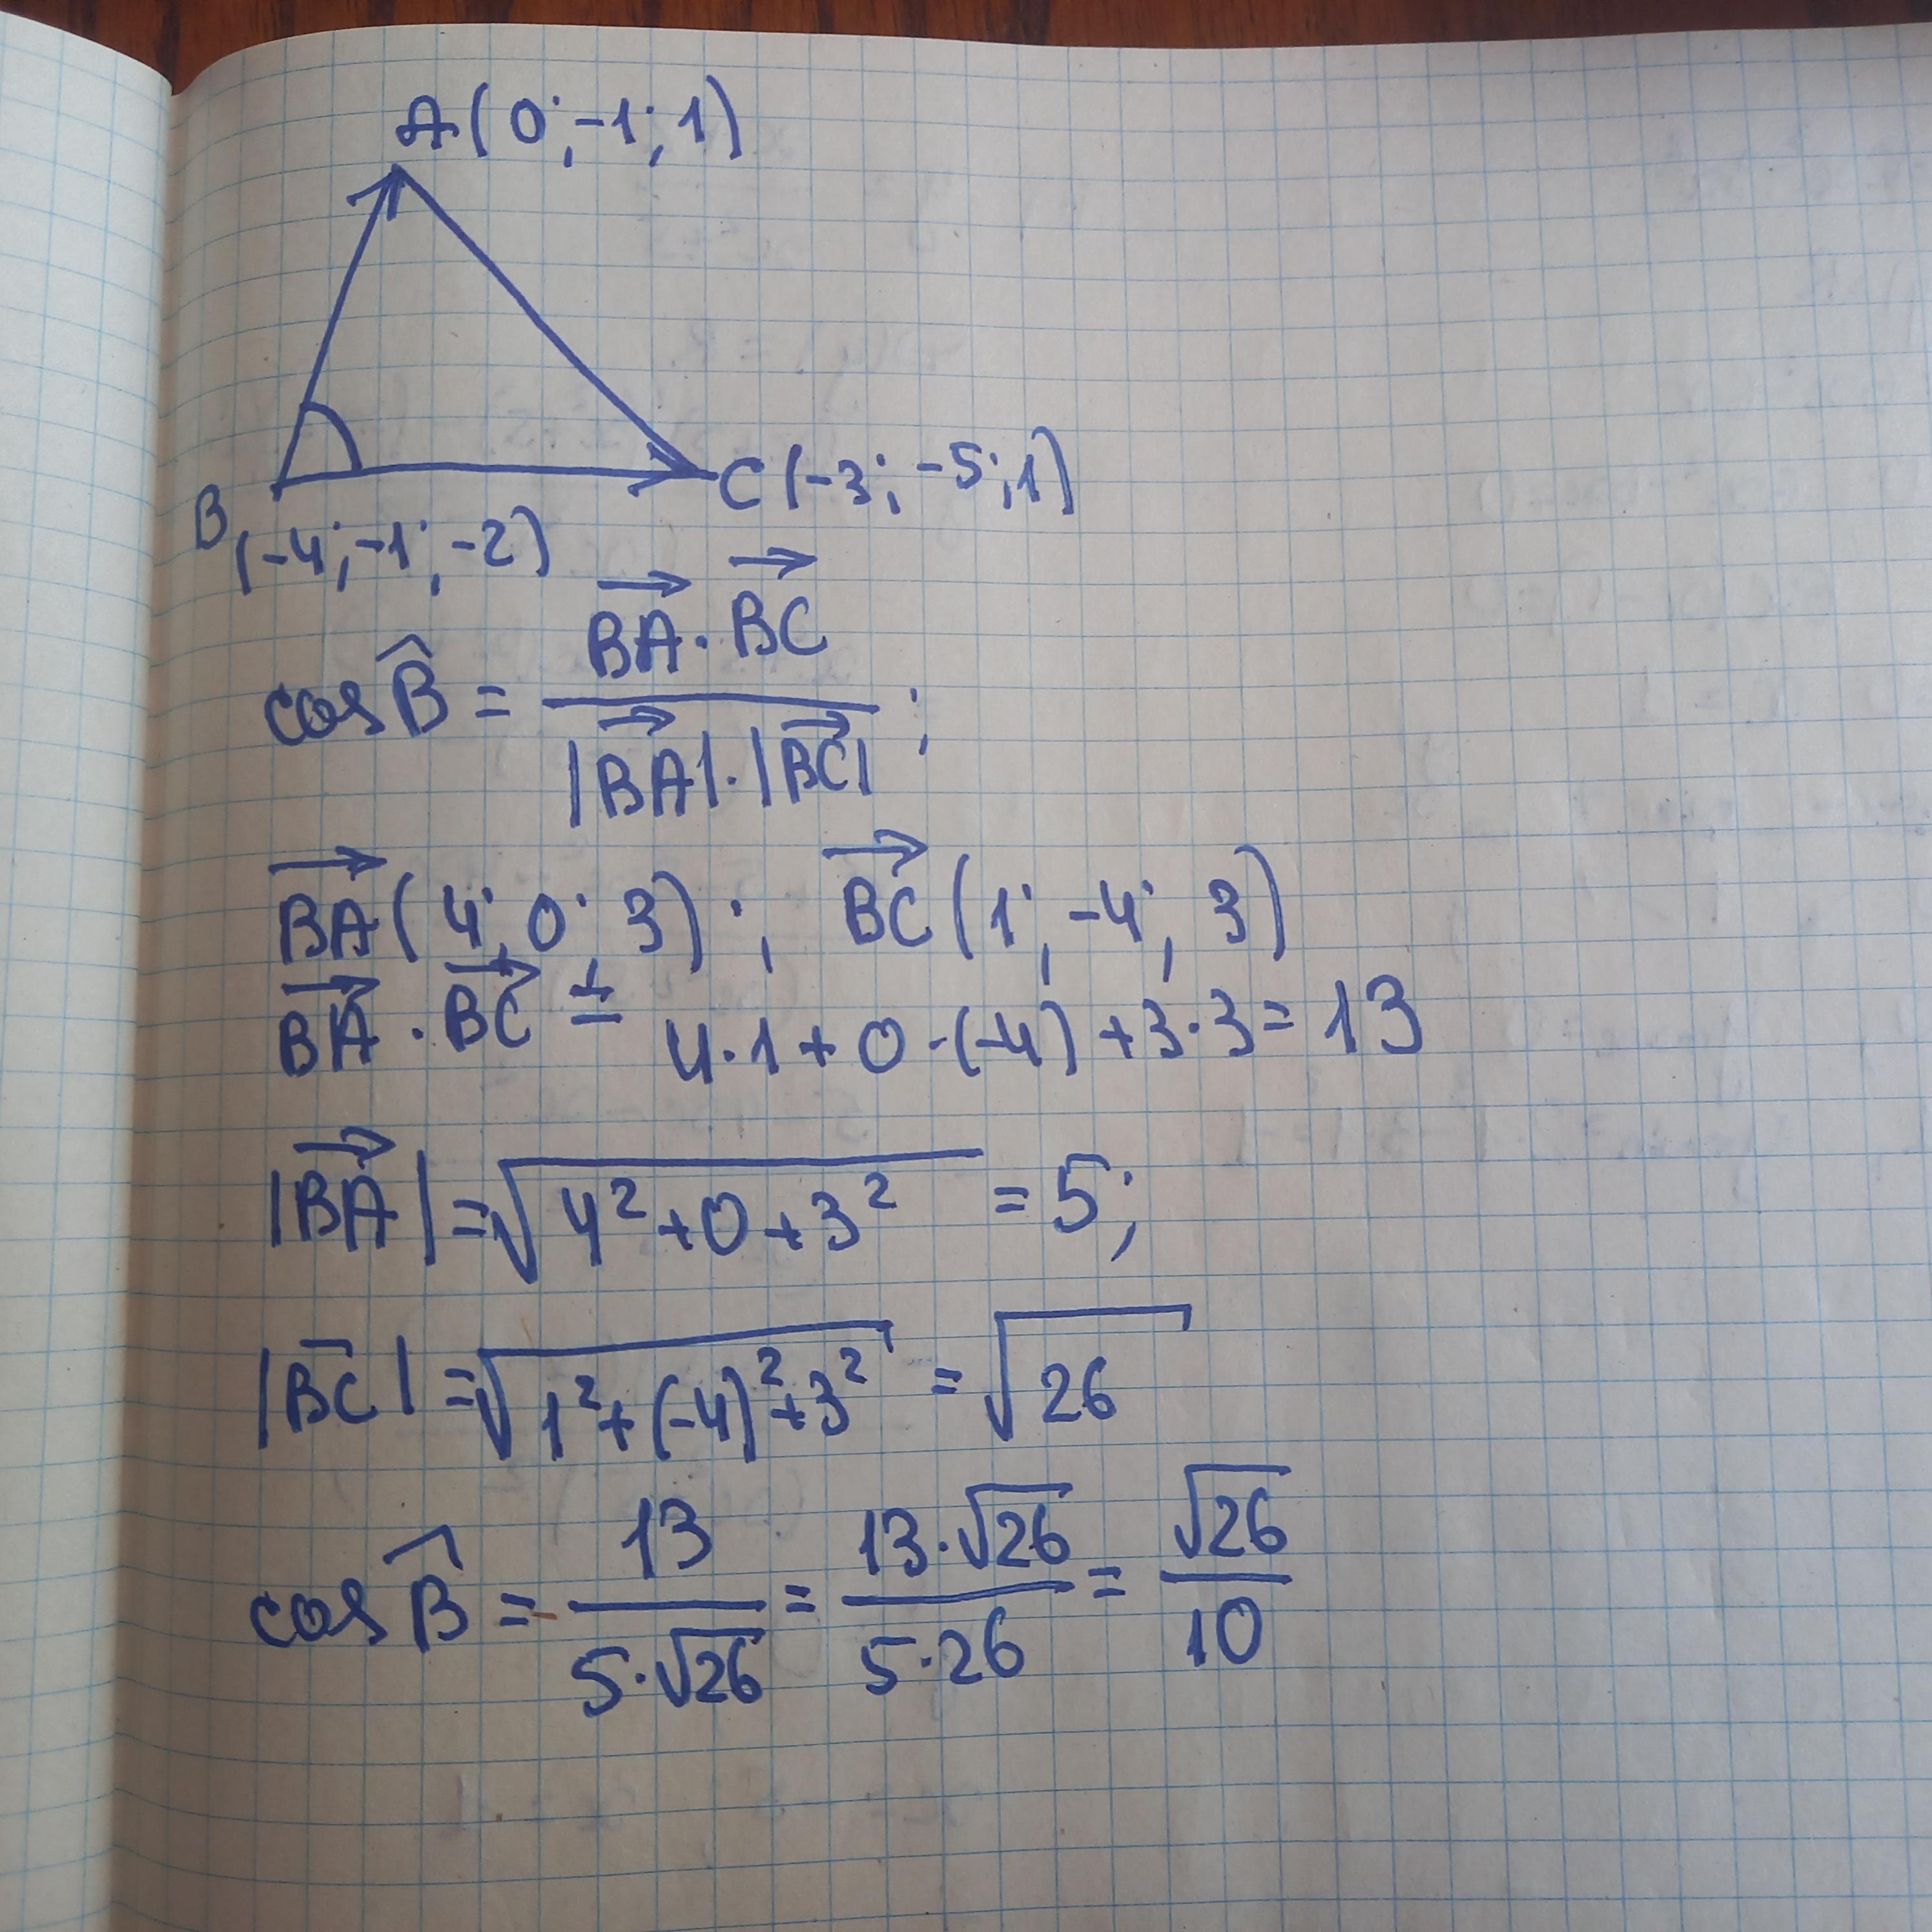 A(0; -1; 1)
C(-3; -5; 1)
B
(-4; -1; -2)
cos B̂ = (BA⃗ · BC⃗) / (|BA⃗| · |BC⃗|) ;
BA⃗(4; 0; 3) ; BC⃗(1; -4; 3)
BA⃗ · BC⃗ = 4·1+0·(-4)+3·3=13
|BA⃗| = √(4²+0+3²) = 5;
|B̅C̅| = √(1²+(-4)²+3²) = √26
cos B̂ = 13/(5·√26) = (13·√26)/(5·26) = √26/10